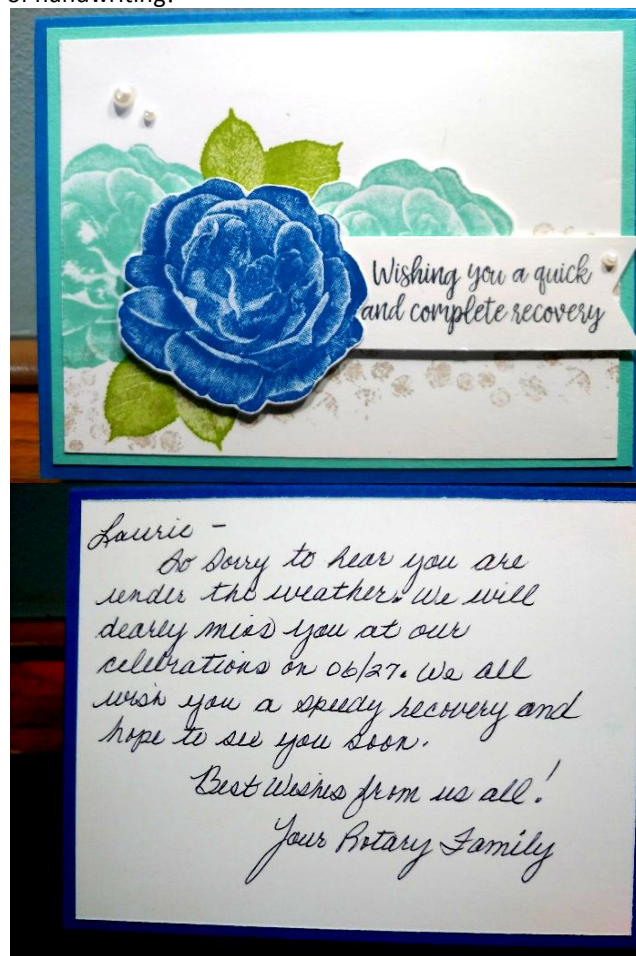 of handwriting?
Wishing you a quick
and complete recovery
Laurie -
So Sorry to hear you are
under the weather. We will
dearly miss you at our
celebrations on 06/27. We all
wish you a speedy recovery and
hope to see you soon.
Best Wishes from us all!
Your Rotary Family